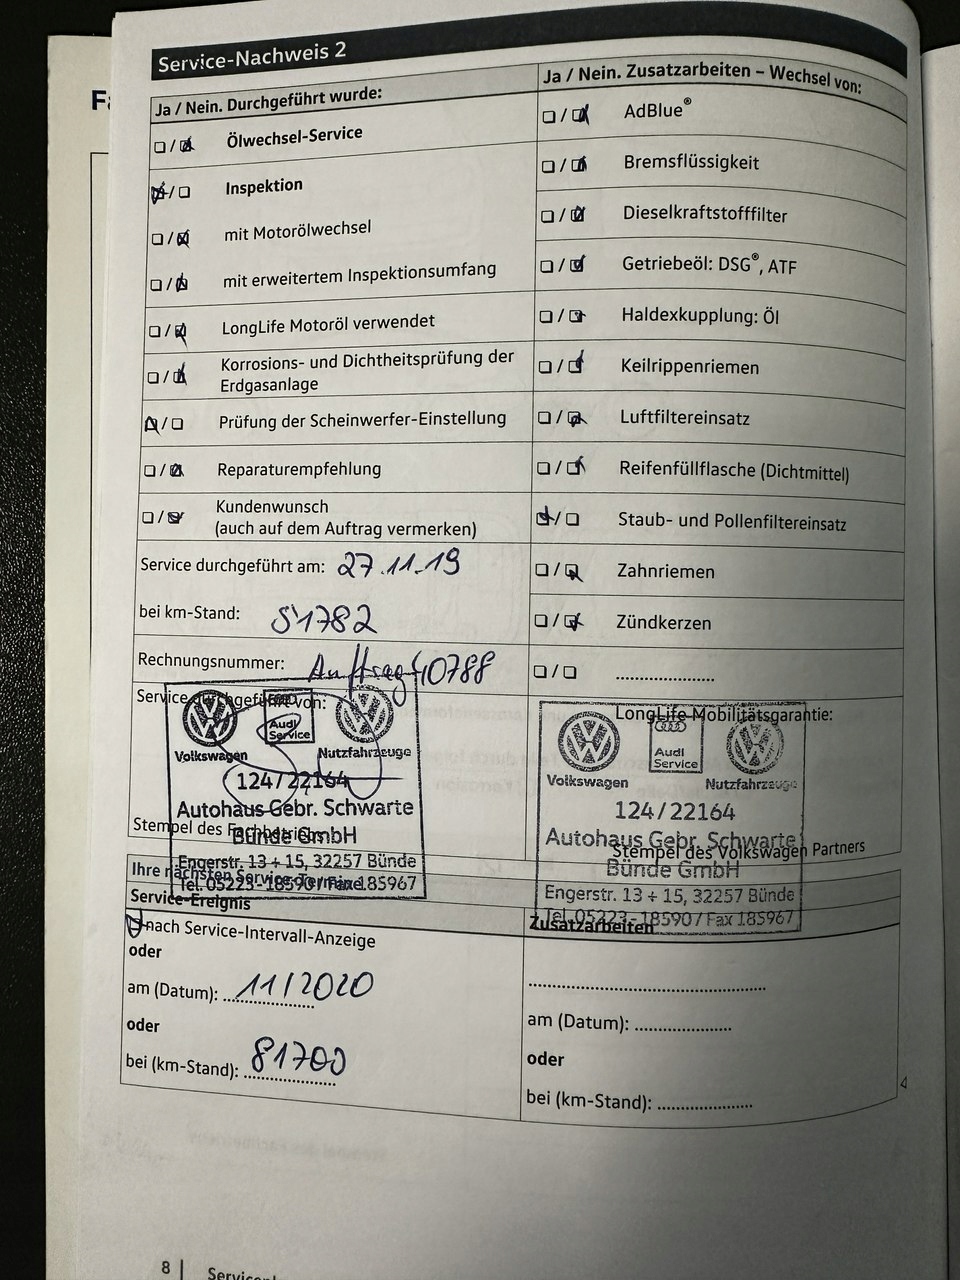 Service-Nachweis 2
Ja / Nein. Durchgeführt wurde:
Ölwechsel-Service
Inspektion
mit Motorölwechsel
mit erweitertem Inspektionsumfang
LongLife Motoröl verwendet
Korrosions- und Dichtheitsprüfung der
Erdgasanlage
Prüfung der Scheinwerfer-Einstellung
Reparaturempfehlung
Kundenwunsch
(auch auf dem Auftrag vermerken)
Service durchgeführt am: 27.11.19
bei km-Stand: 51782
Rechnungsnummer: Auftrag 40788
Service durchgeführt von:
Audi
Service
Volkswagen Nutzfahrzeuge
124/22164
Autohaus Gebr. Schwarte
Bünde GmbH
Engerstr. 13 + 15, 32257 Bünde
Tel. 05223-18590 / Fax 185967
Stempel des Fachbetriebs
Ja / Nein. Zusatzarbeiten – Wechsel von:
AdBlue®
Bremsflüssigkeit
Dieselkraftstofffilter
Getriebeöl: DSG®, ATF
Haldexkupplung: Öl
Keilrippenriemen
Luftfiltereinsatz
Reifenfüllflasche (Dichtmittel)
Staub- und Pollenfiltereinsatz
Zahnriemen
Zündkerzen
LongLife Mobilitätsgarantie:
Audi
Service
Volkswagen Nutzfahrzeuge
124/22164
Autohaus Gebr. Schwarte
Bünde GmbH
Engerstr. 13 + 15, 32257 Bünde
Tel. 05223-18590 / Fax 185967
Stempel des Volkswagen Partners
Ihre nächsten Service-Termine
Service-Ereignis
nach Service-Intervall-Anzeige
oder
am (Datum): 11/2020
oder
bei (km-Stand): 81700
Zusatzarbeiten
am (Datum):
oder
bei (km-Stand):
8